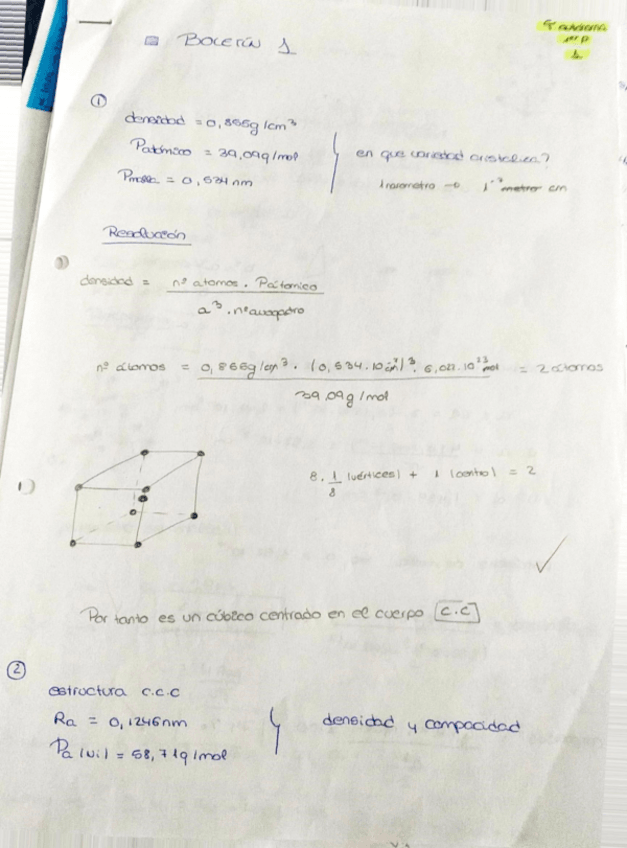 BOLETÍN 1
①
densidad = 0,855g/cm³
Patómico = 39,09g/mol
Pmalla = 0,534 nm
en que variedad cristalina?
1 nanometro → cm
Resolución
densidad = nº atomos . Patomico
a³ . nº avogadro
nº átomos = 0,855g/cm³ . (0,534.10⁻⁷cm)³. 6,022.10²³ mol = 2 atomos
39,09g/mol
8. 1/8 (vértices) + 1 (centro) = 2
Por tanto es un cúbico centrado en el cuerpo C.C
②
estructura c.c.c
Ra = 0,1246nm
Pa (Ni) = 58,71g/mol
densidad y compacidad